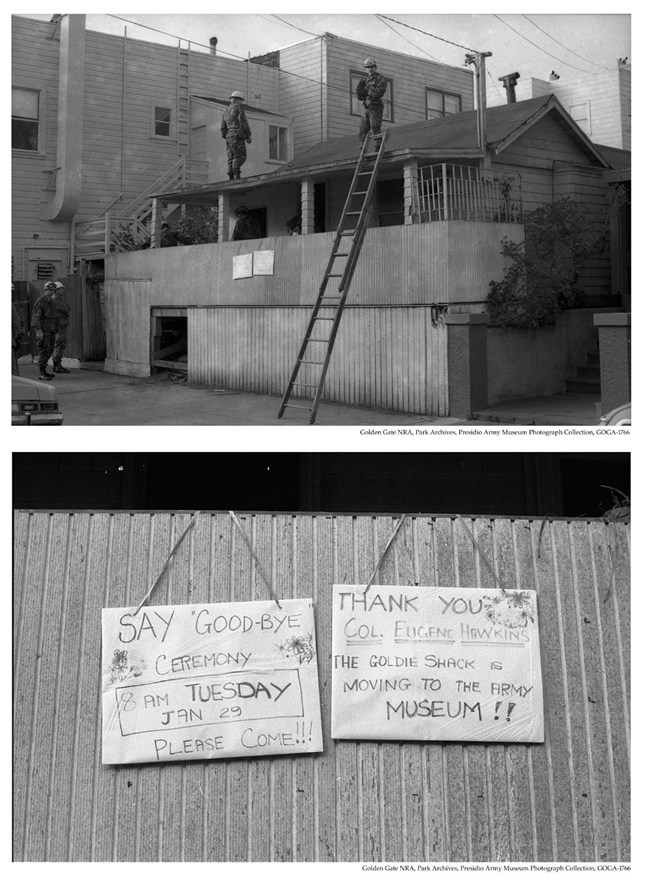 Golden Gate NRA, Park Archives, Presidio Army Museum Photograph Collection, GOGA-1766
SAY "GOOD-BYE"
CEREMONY
8 AM TUESDAY
JAN 29
PLEASE COME!!!
THANK YOU
COL. EUGENE HAWKINS
THE GOLDIE SHACK IS
MOVING TO THE ARMY
MUSEUM!!
Golden Gate NRA, Park Archives, Presidio Army Museum Photograph Collection, GOGA-1766